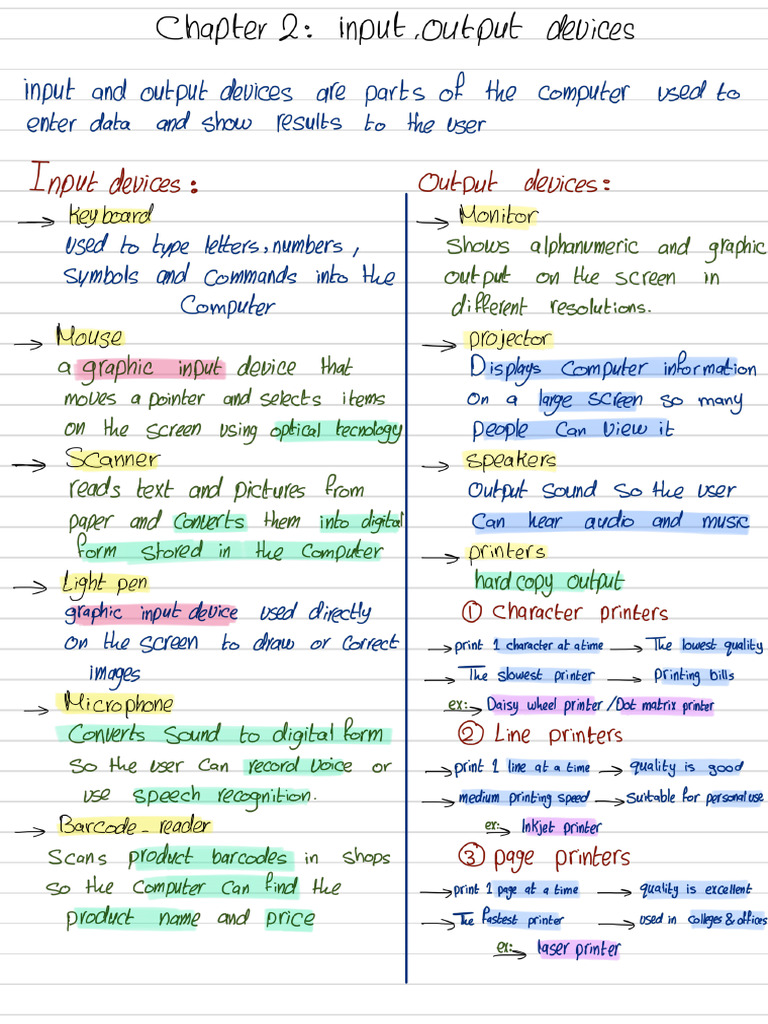 Chapter 2: input, output devices
input and output devices are parts of the computer used to
enter data and show results to the user
Input devices:
→ Keyboard
used to type letters, numbers,
symbols and commands into the
Computer
→ Mouse
a graphic input device that
moves a pointer and selects items
on the screen using optical tecnology
→ Scanner
reads text and pictures from
paper and converts them into digital
form stored in the computer
→ Light pen
graphic input device used directly
on the screen to draw or correct
images
→ Microphone
Converts sound to digital form
so the user can record voice or
use speech recognition.
→ Barcode-reader
Scans product barcodes in shops
so the computer can find the
product name and price
Output devices:
→ Monitor
Shows alphanumeric and graphic
output on the screen in
different resolutions.
→ projector
Displays computer information
on a large screen so many
people can view it
→ speakers
output sound so the user
can hear audio and music
→ printers
hard copy output
① Character printers
→ print 1 character at a time → The lowest quality
→ The slowest printer → printing bills
ex: → Daisy wheel printer / Dot matrix printer
② Line printers
→ print 1 line at a time → quality is good
→ medium printing speed → suitable for personal use
ex: → Inkjet printer
③ page printers
→ print 1 page at a time → quality is excellent
→ The fastest printer → used in colleges & offices
ex: → laser printer